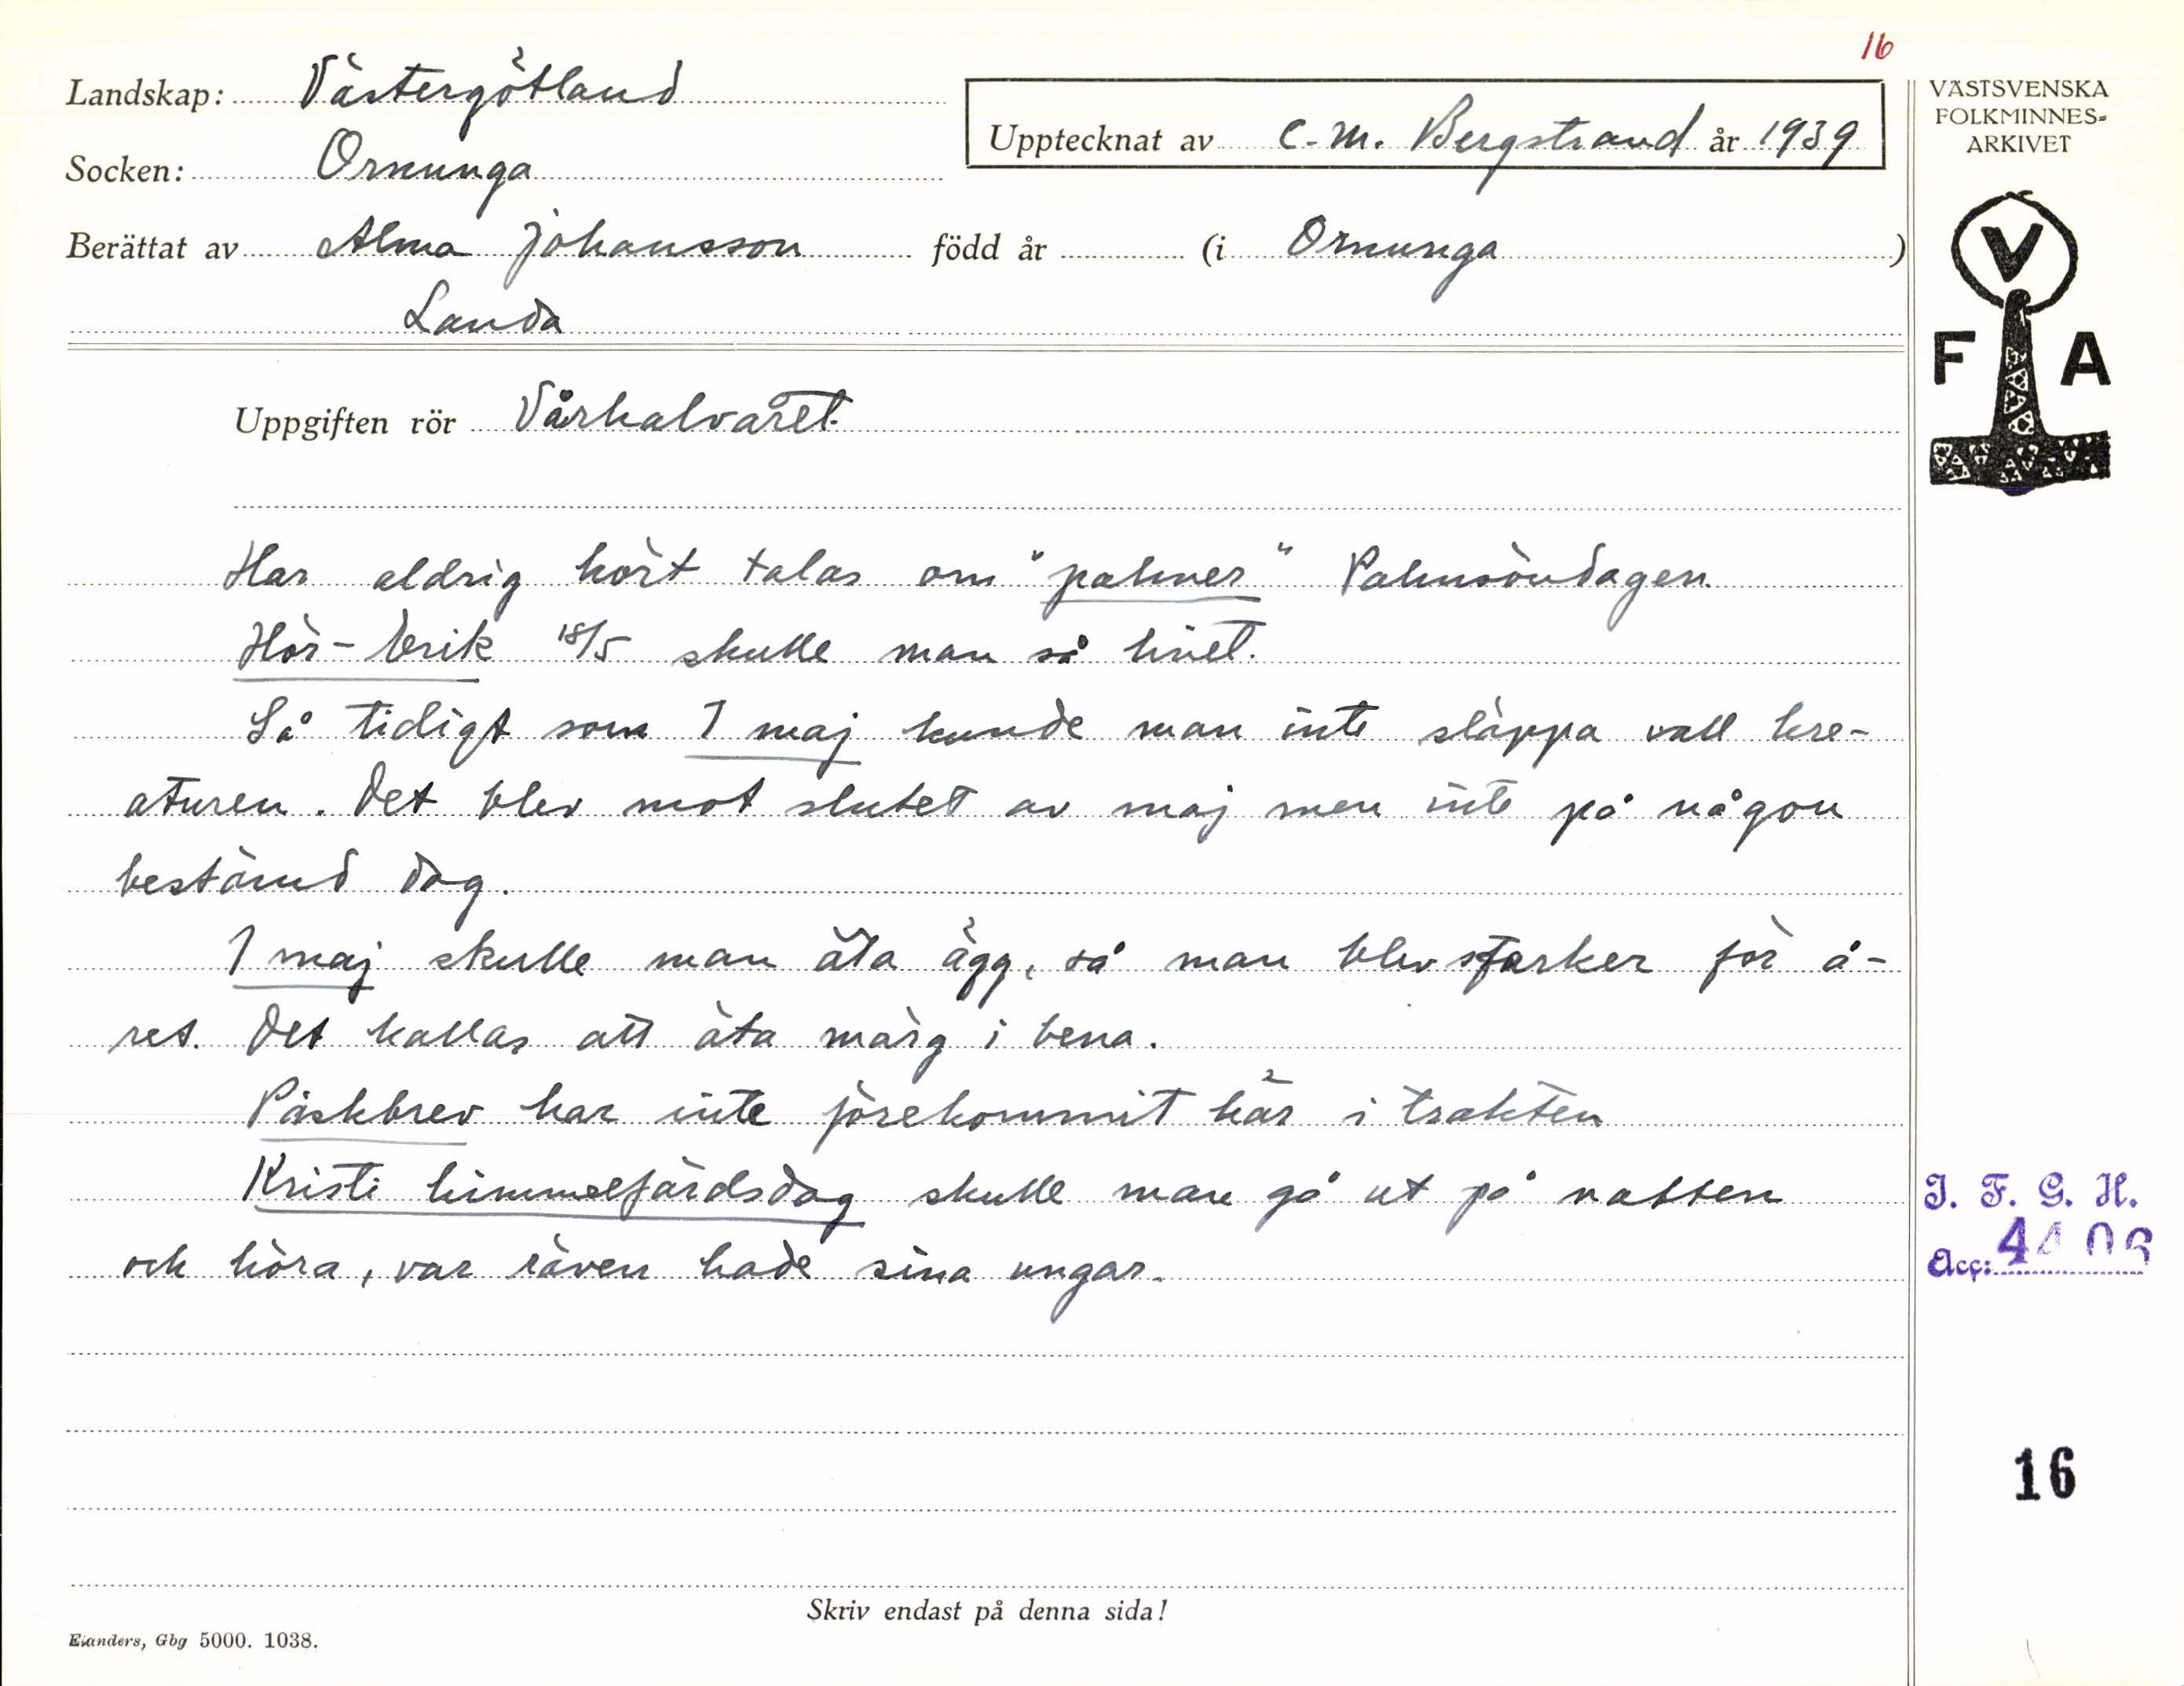 16
Landskap: Västergötland
Socken: Ornunga
Upptecknat av C.M. Bergstrand år 1939
Berättat av Alma Johansson född år (i Ornunga )
Landa
VÄSTSVENSKA
FOLKMINNES-
ARKIVET
V
F A
Uppgiften rör Vårhalvåret.
Har aldrig hört talas om "palmer" Palmsöndagen.
Hör-Erik 18/5 skulle man så linet.
Så tidigt som 1 maj kunde man inte släppa vall kre-
aturen. Det blev mot slutet av maj men inte på någon
bestämd dag.
1 maj skulle man äta ägg, så man blev starker för å-
ret. Det kallas att äta märg i bena.
Påskbrev har inte förekommit här i trakten
Kristi himmelfärdsdag skulle man gå ut på natten
och höra, var räven hade sina ungar.
I. F. G. H.
Acc: 4406
16
Skriv endast på denna sida!
Elanders, Gbg 5000. 1038.